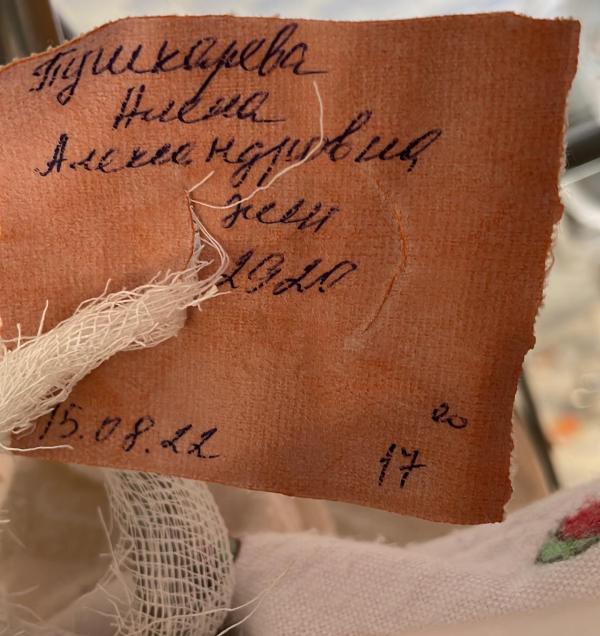 Пушкарева
Алена
Александровна
жен
2920
15.08.22 17 20